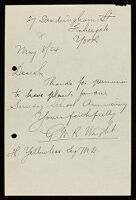 27 Sandringham St
Fishergate
York
May 8/24
Dear Sir
Thanks for permission
to have plants for our
Sunday School Anniversary
Yours faithfully
G. W. R. Wright
H. Yellowlees Esq M.D.